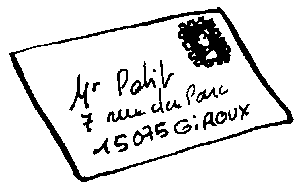 Mr Petit
7 rue du Parc
15075 GIROUX